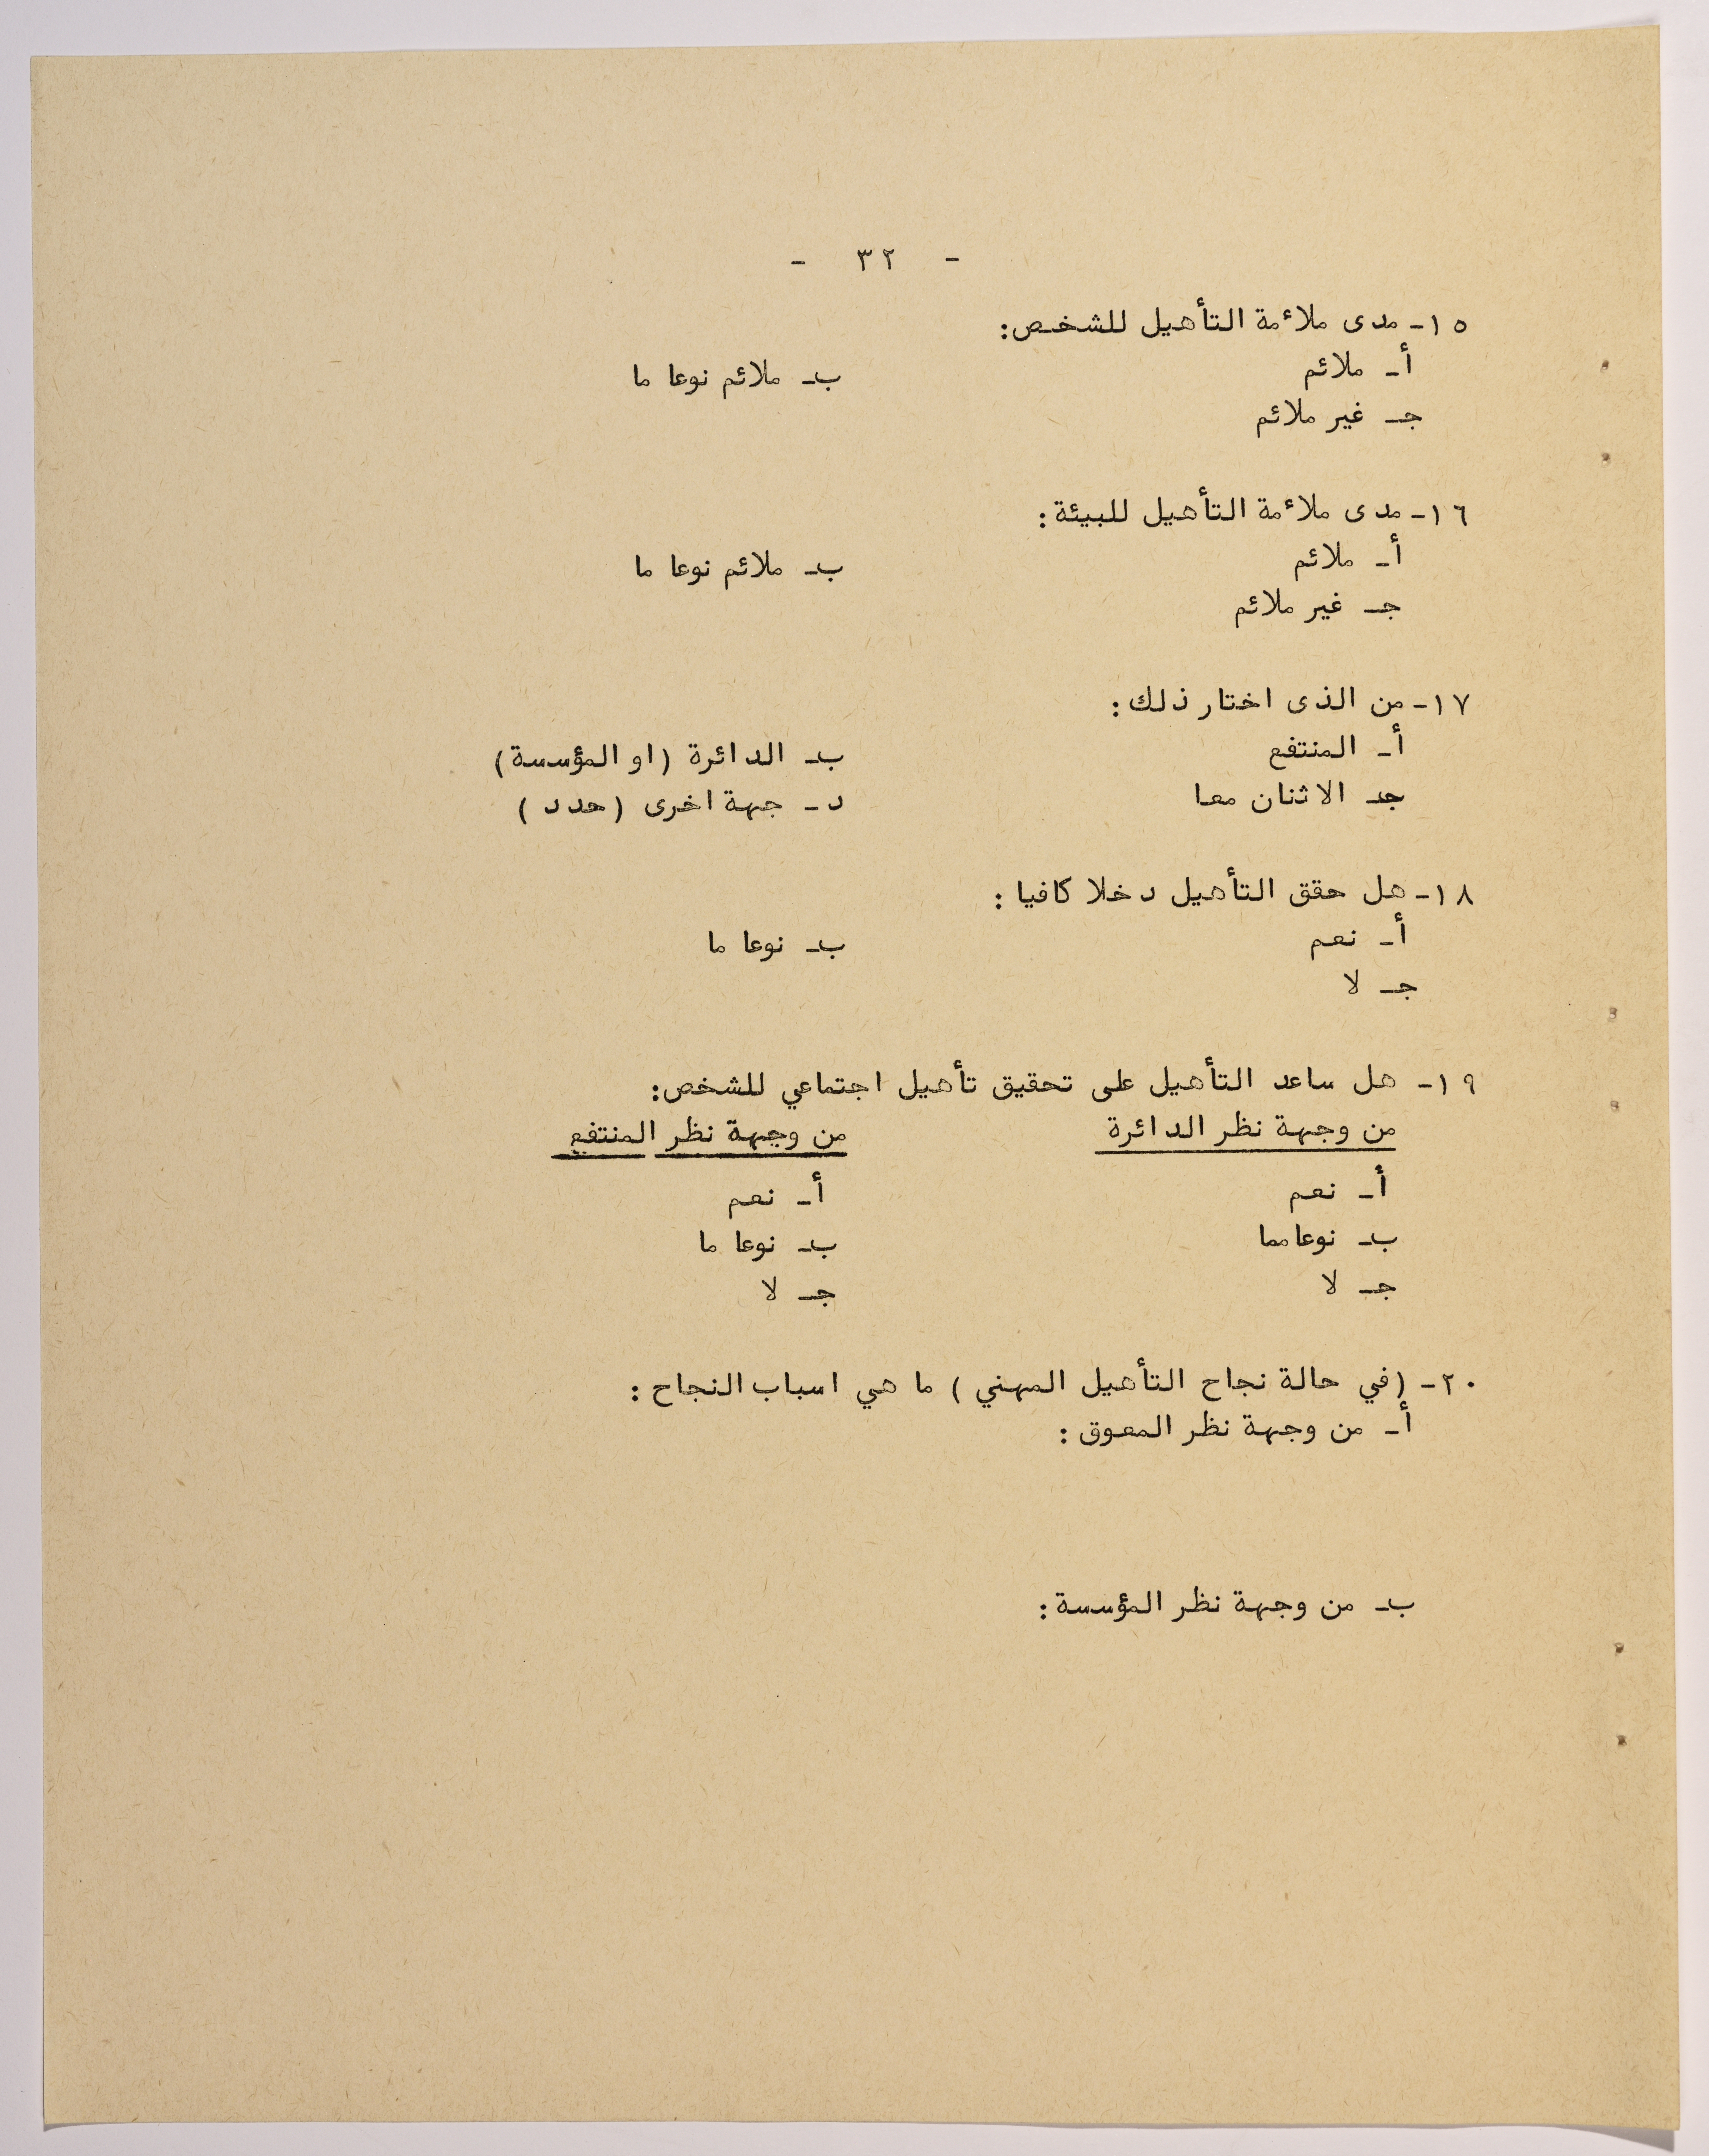 - ٣٢ -
١٥- مدى ملاءمة التأهيل للشخص:
أ- ملائم ب- ملائم نوعا ما
جـ- غير ملائم
١٦- مدى ملاءمة التأهيل للبيئة:
أ- ملائم ب- ملائم نوعا ما
جـ- غير ملائم
١٧- من الذى اختار ذلك:
أ- المنتفع ب- الدائرة (او المؤسسة)
جـ- الاثنان معا د- جهة اخرى (حدد)
١٨- هل حقق التأهيل دخلا كافيا:
أ- نعم ب- نوعا ما
جـ- لا
١٩- هل ساعد التأهيل على تحقيق تأهيل اجتماعي للشخص:
من وجهة نظر الدائرة من وجهة نظر المنتفع
أ- نعم أ- نعم
ب- نوعا مما ب- نوعا ما
جـ- لا جـ- لا
٢٠- (في حالة نجاح التأهيل المهني) ما هي اسباب النجاح:
أ- من وجهة نظر المعوق:
ب- من وجهة نظر المؤسسة: